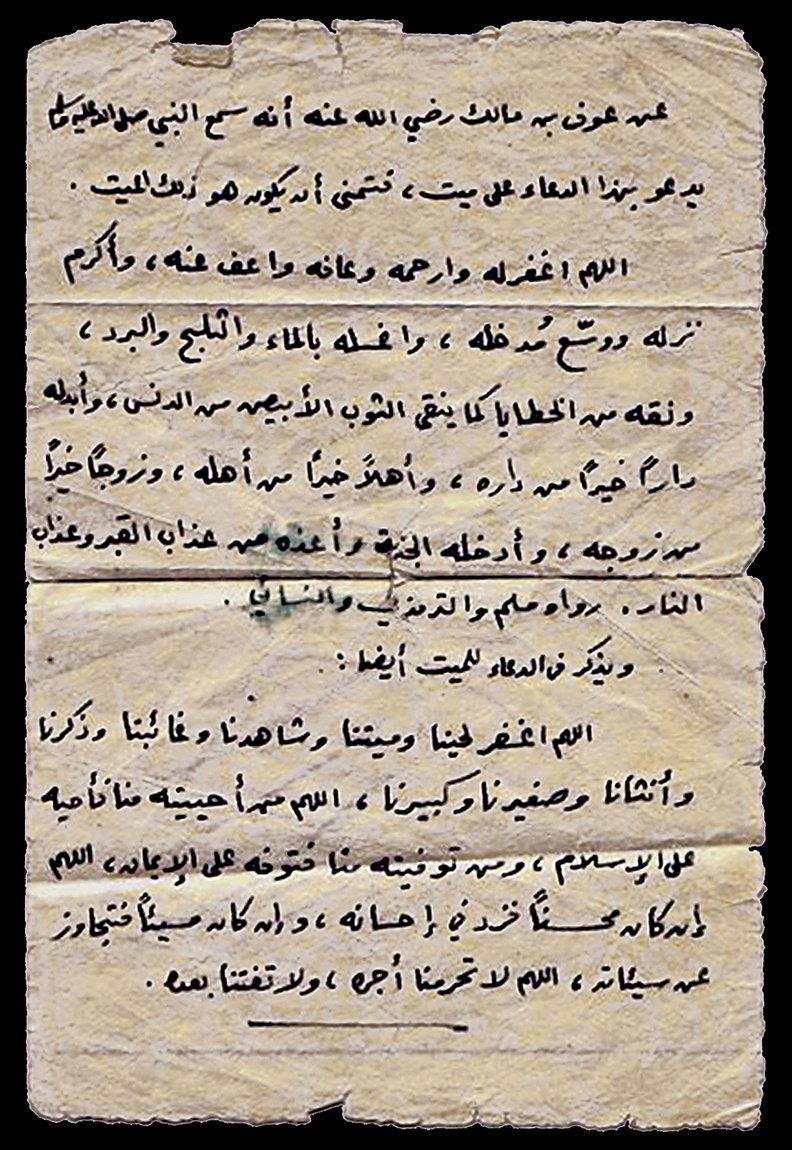 عن عوف بن مالك رضي الله عنه أنه سمع النبي صلى الله عليه وسلم
يدعو بهذا الدعاء على ميت ، فتمنى أن يكون هو ذلك الميت .
اللهم اغفر له وارحمه وعافه واعف عنه ، وأكرم
نزله ووسّع مُدخله ، واغسله بالماء والثلج والبرد ،
ونقه من الخطايا كما ينقى الثوب الأبيض من الدنس ، وأبدله
داراً خيراً من داره ، وأهلاً خيراً من أهله ، وزوجاً خيراً
من زوجه ، وأدخله الجنة وأعذه من عذاب القبر وعذاب
النار . رواه مسلم والترمذي والنسائي .
ويذكر في الدعاء للميت أيضا :
اللهم اغفر لحينا وميتنا وشاهدنا وغائبنا وذكرنا
وأنثانا وصغيرنا وكبيرنا ، اللهم من أحييته منا فأحيه
على الإسلام ، ومن توفيته منا فتوفه على الإيمان ، اللهم
إن كان محسناً فزد في إحسانه ، وإن كان مسيئاً فتجاوز
عن سيئاته ، اللهم لا تحرمنا أجره ، ولا تفتنا بعده .